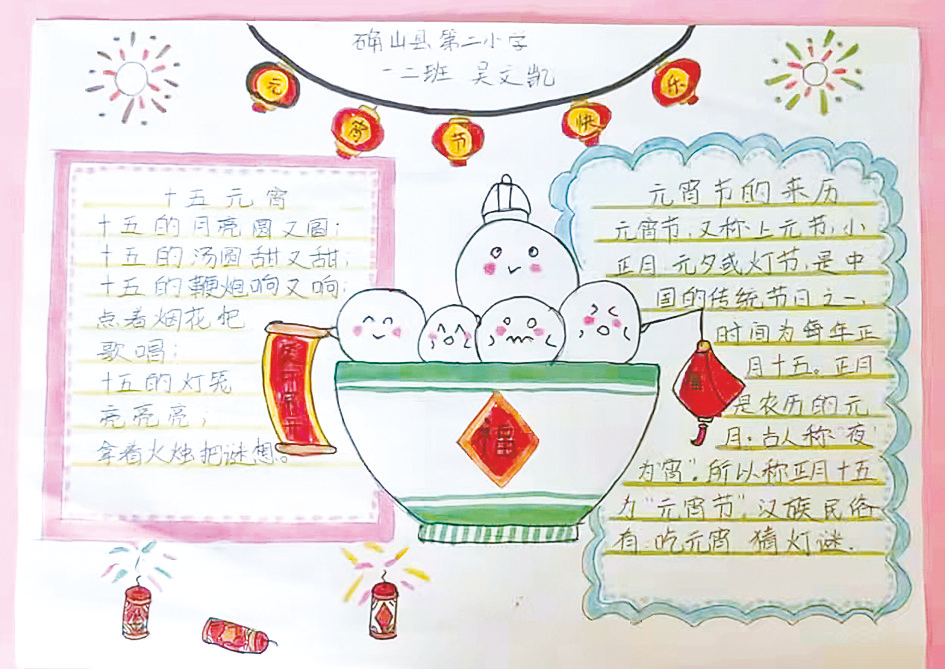 确山县第二小学
一二班 吴文凯
元宵节快乐
十五元宵
十五的月亮圆又圆;
十五的汤圆甜又甜;
十五的鞭炮响又响;
点着烟花把
歌唱;
十五的灯笼
亮亮亮;
拿着火烛把谜想。
福
元宵节的来历
元宵节,又称上元节,小
正月、元夕或灯节,是中
国的传统节日之一,
时间为每年正
月十五。正月
是农历的元
月,古人称“夜”
为“宵”,所以称正月十五
为“元宵节”,汉族民俗
有吃元宵 猜灯谜.